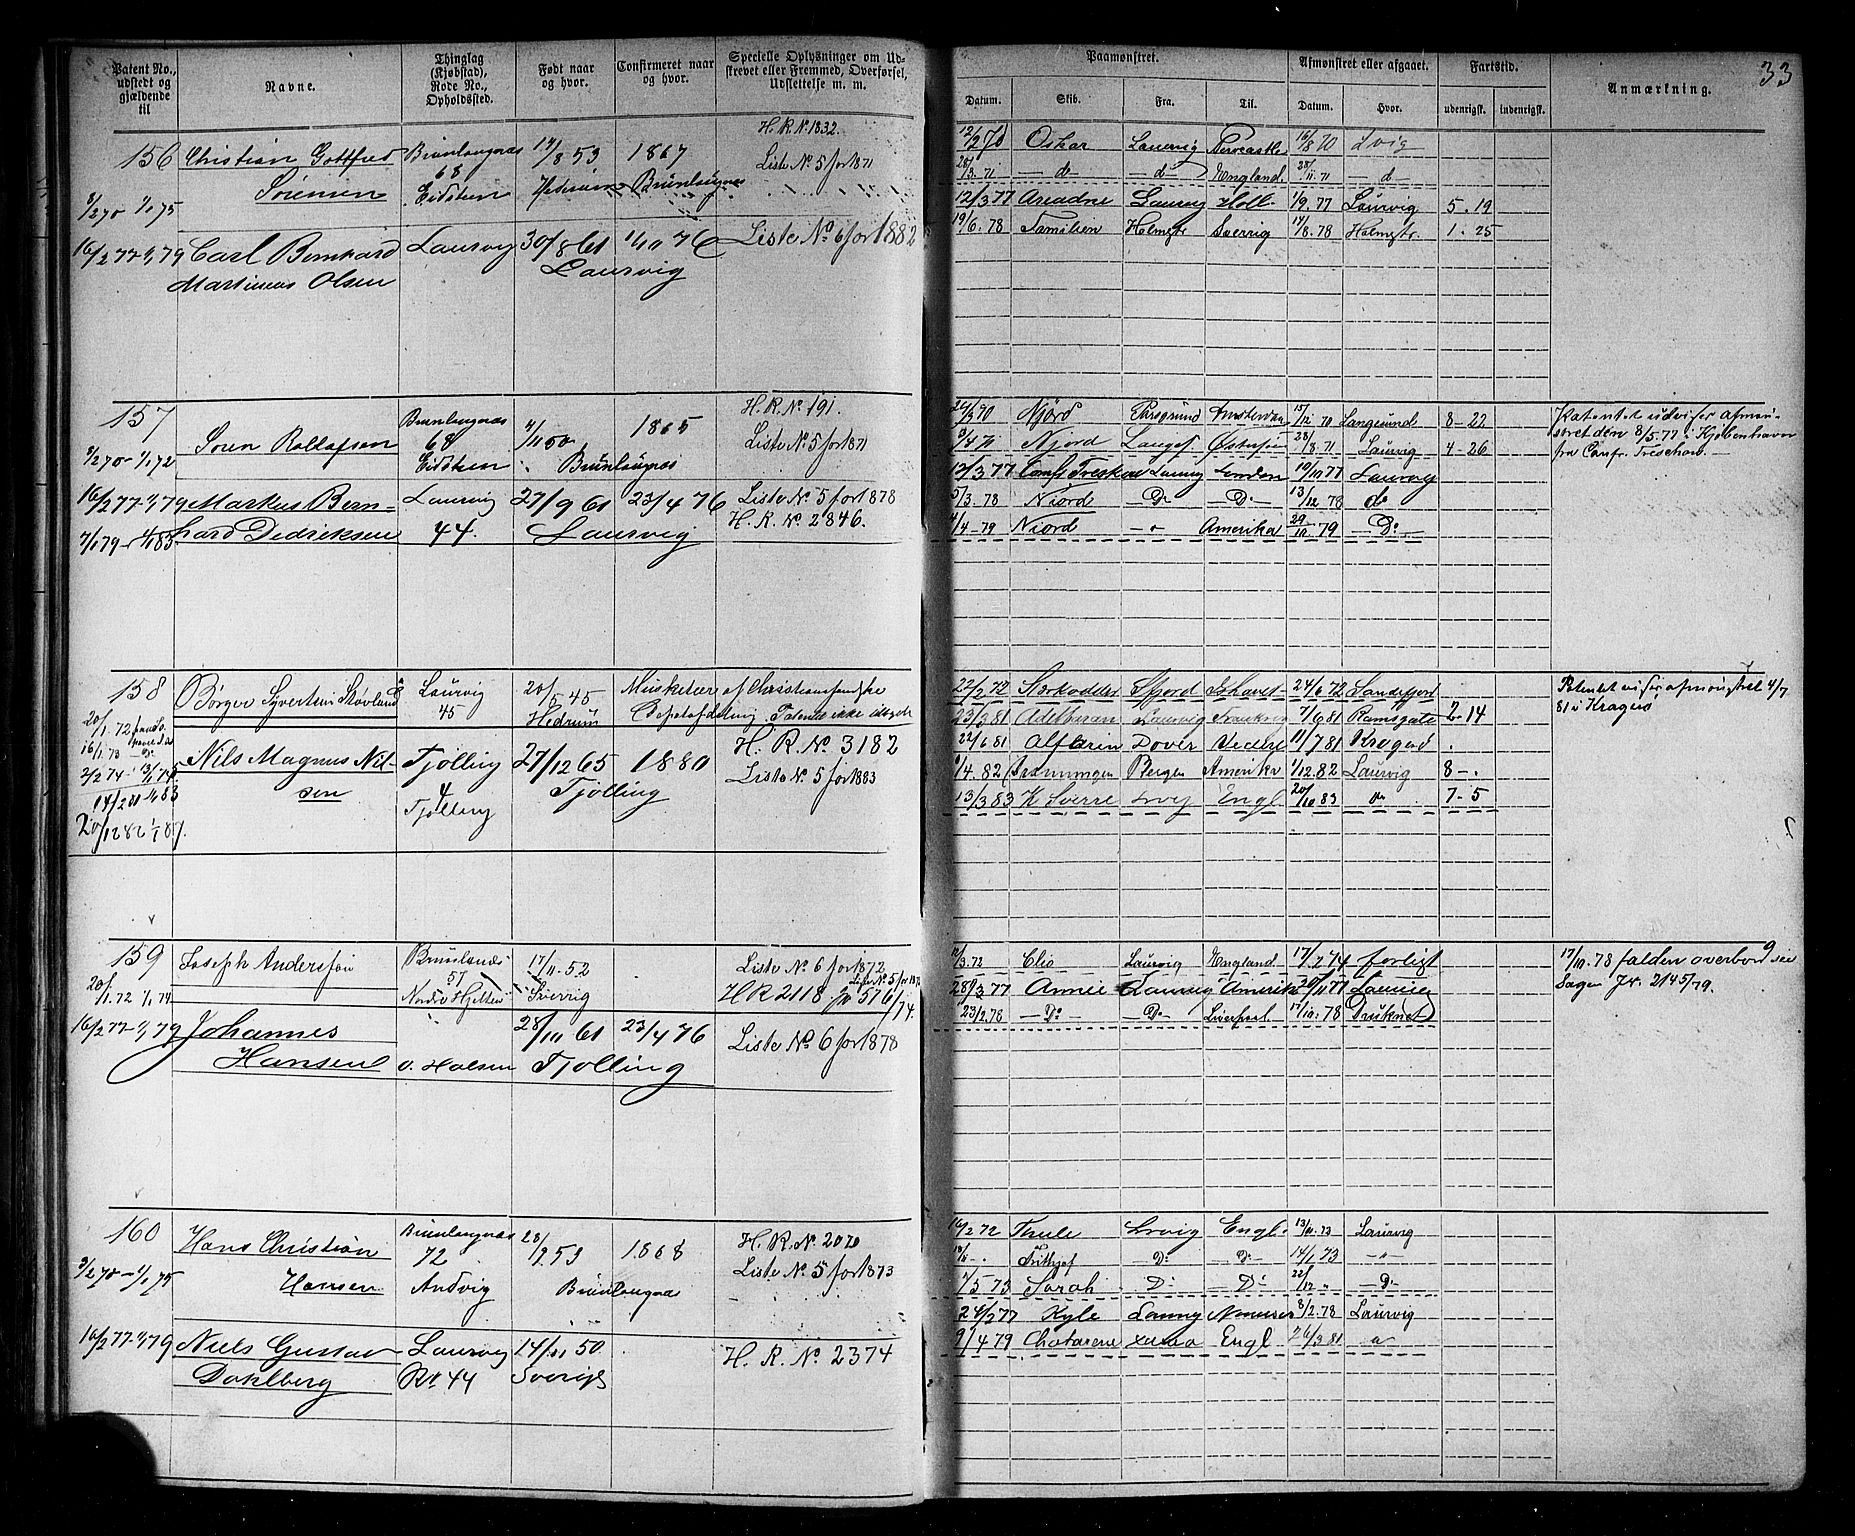 33
Patent No., udstedt og gjældende til
Navne.
Thinglag (Kjøbstad), Rode No., Opholdssted.
Født naar og hvor.
Confirmeret naar og hvor.
Specielle Oplysninger om Udskrevet eller Fremmed, Overførsel, Udslettelse m. m.
Paamønstret.
Datum. Skib. Fra. Til.
Afmønstret eller afgaaet.
Datum. Hvor.
Fartstid.
udenrigsk. indenrigsk.
Anmærkning.
H. R. No. 1832.
156 Christian Gottfred 17/8 53 1867 Liste No. 5 for 1871
Sörensen 68 Eidsten Brunlaugnæs
3/2 70 1/1 75
16/2 77-1/1 79 Carl Bernhard Laurvig 30/8 61 1/10 76 Liste No. 6 for 1882
Martinius Olsen Laurvig
12/2 70 Oskar Laurvig Newcastle 16/8 70 Lvig
28/3 71 — d — — d England 28/11 71 — d
12/3 77 Ariadne Laurvig Holl. 1/9 77 Laurvig 5. 19
19/6. 78 Familien Holmstr. Sverrig 17/8. 78 Holmstr. 1. 25
157 H. R. No. 191.
Soren Rollofsen Brunlaugnæs 68 Eidsten 4/11 50 1865 Liste No. 5 for 1871
3/2 70-1/1 72 Brunlaugnæs
16/2 77-1/1 79 Markus Bern- Laurvig 27/9 61 23/4 76 Liste No. 5 for 1878
7/1 79-1/1 83 hard Dedriksen 44. Laurvig H. R. No. 2846.
Njord Porsgrund Amsterdam 15/12 70 Langesund 8-22
Njord Langes 28/8 71 Laurvig 4 26
12/3 77 Laurvig London 10/10 77 Laurvig
5/3. 78 Niord Do. — Do. 13/12. 78 do
4/4-79 Niord Amerika 29/10. 79 — Do.
Patentet udviser afmøn-
stret den 8/5 77 i Kjøbenhavn
fra Conf. Treschow. —
158 Börger Syvertsen Laurvig 45 20/5 45 Hedrum Musketær af Christiansandske
Depotafdeling. Patent ikke
20/1. 72
16/1. 73
14/2 81 1/1 83 Nils Magnus Nil- Tjölling 27/12 65 1880 H. R. No. 3182
sen 4 Tjölling Tjölling Liste No. 5 for 1883
20/12 82 1/1 87.
22/2 72 Sfjord 24/6 72 Sandefjord
23/3 81 Adelbaran Laurvig 7/6 81 Ramsgate 2-14
22/6 81 Dover 11/7 81 Kragerö
1/4. 82 Bergen Amerika 1/12. 82 Laurvig 8-.
13/3 83 K Sverre Lvig Engl 20/10 83 do 7-5
Patentet viser afmønstret 4/7
81 i Kragerö
159 Joseph Andersson 57 17/11. 52 Liste No. 6 for 1872
20/1. 72 1/1 74 Sverrig HR 2118 576/74.
16/2 77-1/1 79 Johannes 28/10 61 23/4 76
Hansen Ö. Halsen Tjölling Liste No. 6 for 1878
Clio Laurvig England 17/2 74 forligt
28/3 77 Annie Laurvig Amerika Laurvig
23/2. 78 — Do. — Do. Liverpool 17/10. 78 Druknet
17/10. 78 falden overbord see
Sagen Jr. 2145/79.
160 Hans Christian Brunlaugnæs 28/9 53 1868 H. R. No. 2020
72
3/2 70-1/1 75 Hansen Andvig Brunlaugnæs Liste No. 5 for 1873
16/2 77-1/1 79 Niels Gustav Laurvig 14/11 50
Dahlberg Rd 44 Sverige H. R. No. 2374
16/2 72 Thule Lvig Engl. 13/10. 73 Laurvig
Frithjof Do. Do. 14/1 73
1/5 73 Sarah — Do. — Do. 22/12 — Do.
24/2 77 Kyle Laurvig 8/2. 78 Laurvig
9/4 79 Engl 26/3 81